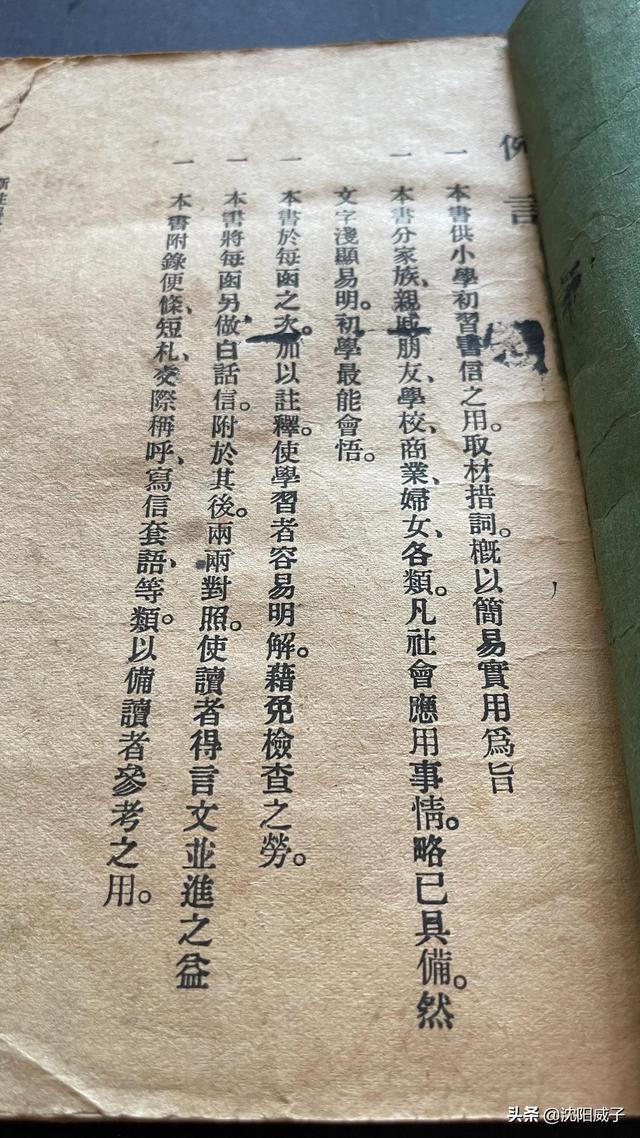 例言
一 本書供小學初習書信之用。取材措詞。概以簡易實用爲旨
一 本書分家族、親戚、朋友、學校、商業、婦女、各類。凡社會應用事情。略已具備。然
文字淺顯易明。初學最能會悟。
一 本書於每函之次。加以註釋。使學習者容易明解。藉免檢查之勞。
一 本書將每函另做白話信。附於其後。兩兩對照。使讀者得言文並進之益
一 本書附錄便條、短札、交際稱呼、寫信套語、等類。以備讀者參考之用。
头条 @沈阳威子